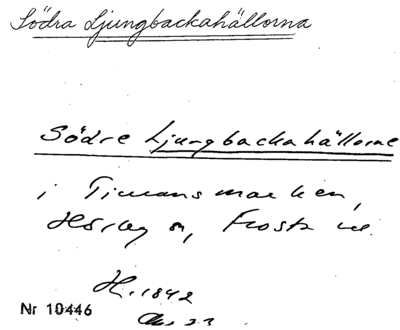 Södra Ljungbackahällorna
Södre Ljungbackahällorne
i Timansmarken,
sn, Frosta
H. 1842
Nr 10446